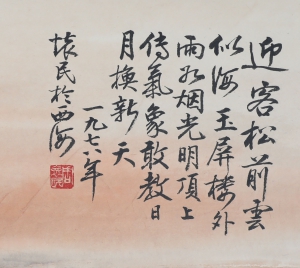 迎客松前雲
似海玉屏樓外
雨如烟光明頂上
傳氣象敢教日
月換新天
一九七六年
懷民於西海